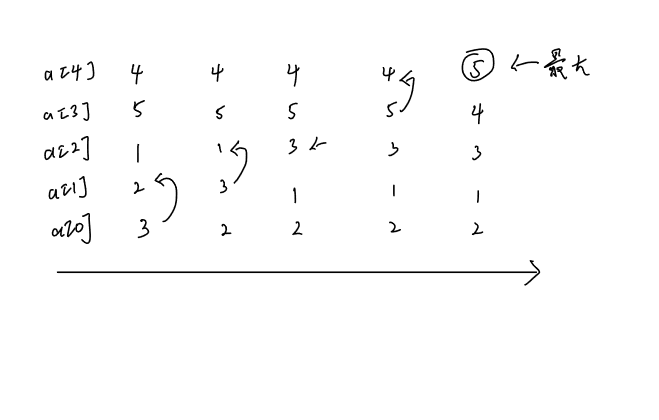 a[4] 4 4 4 4 5 ← 最大
a[3] 5 5 5 5 4
a[2] 1 1 3 ← 3 3
a[1] 2 3 1 1 1
a[0] 3 2 2 2 2